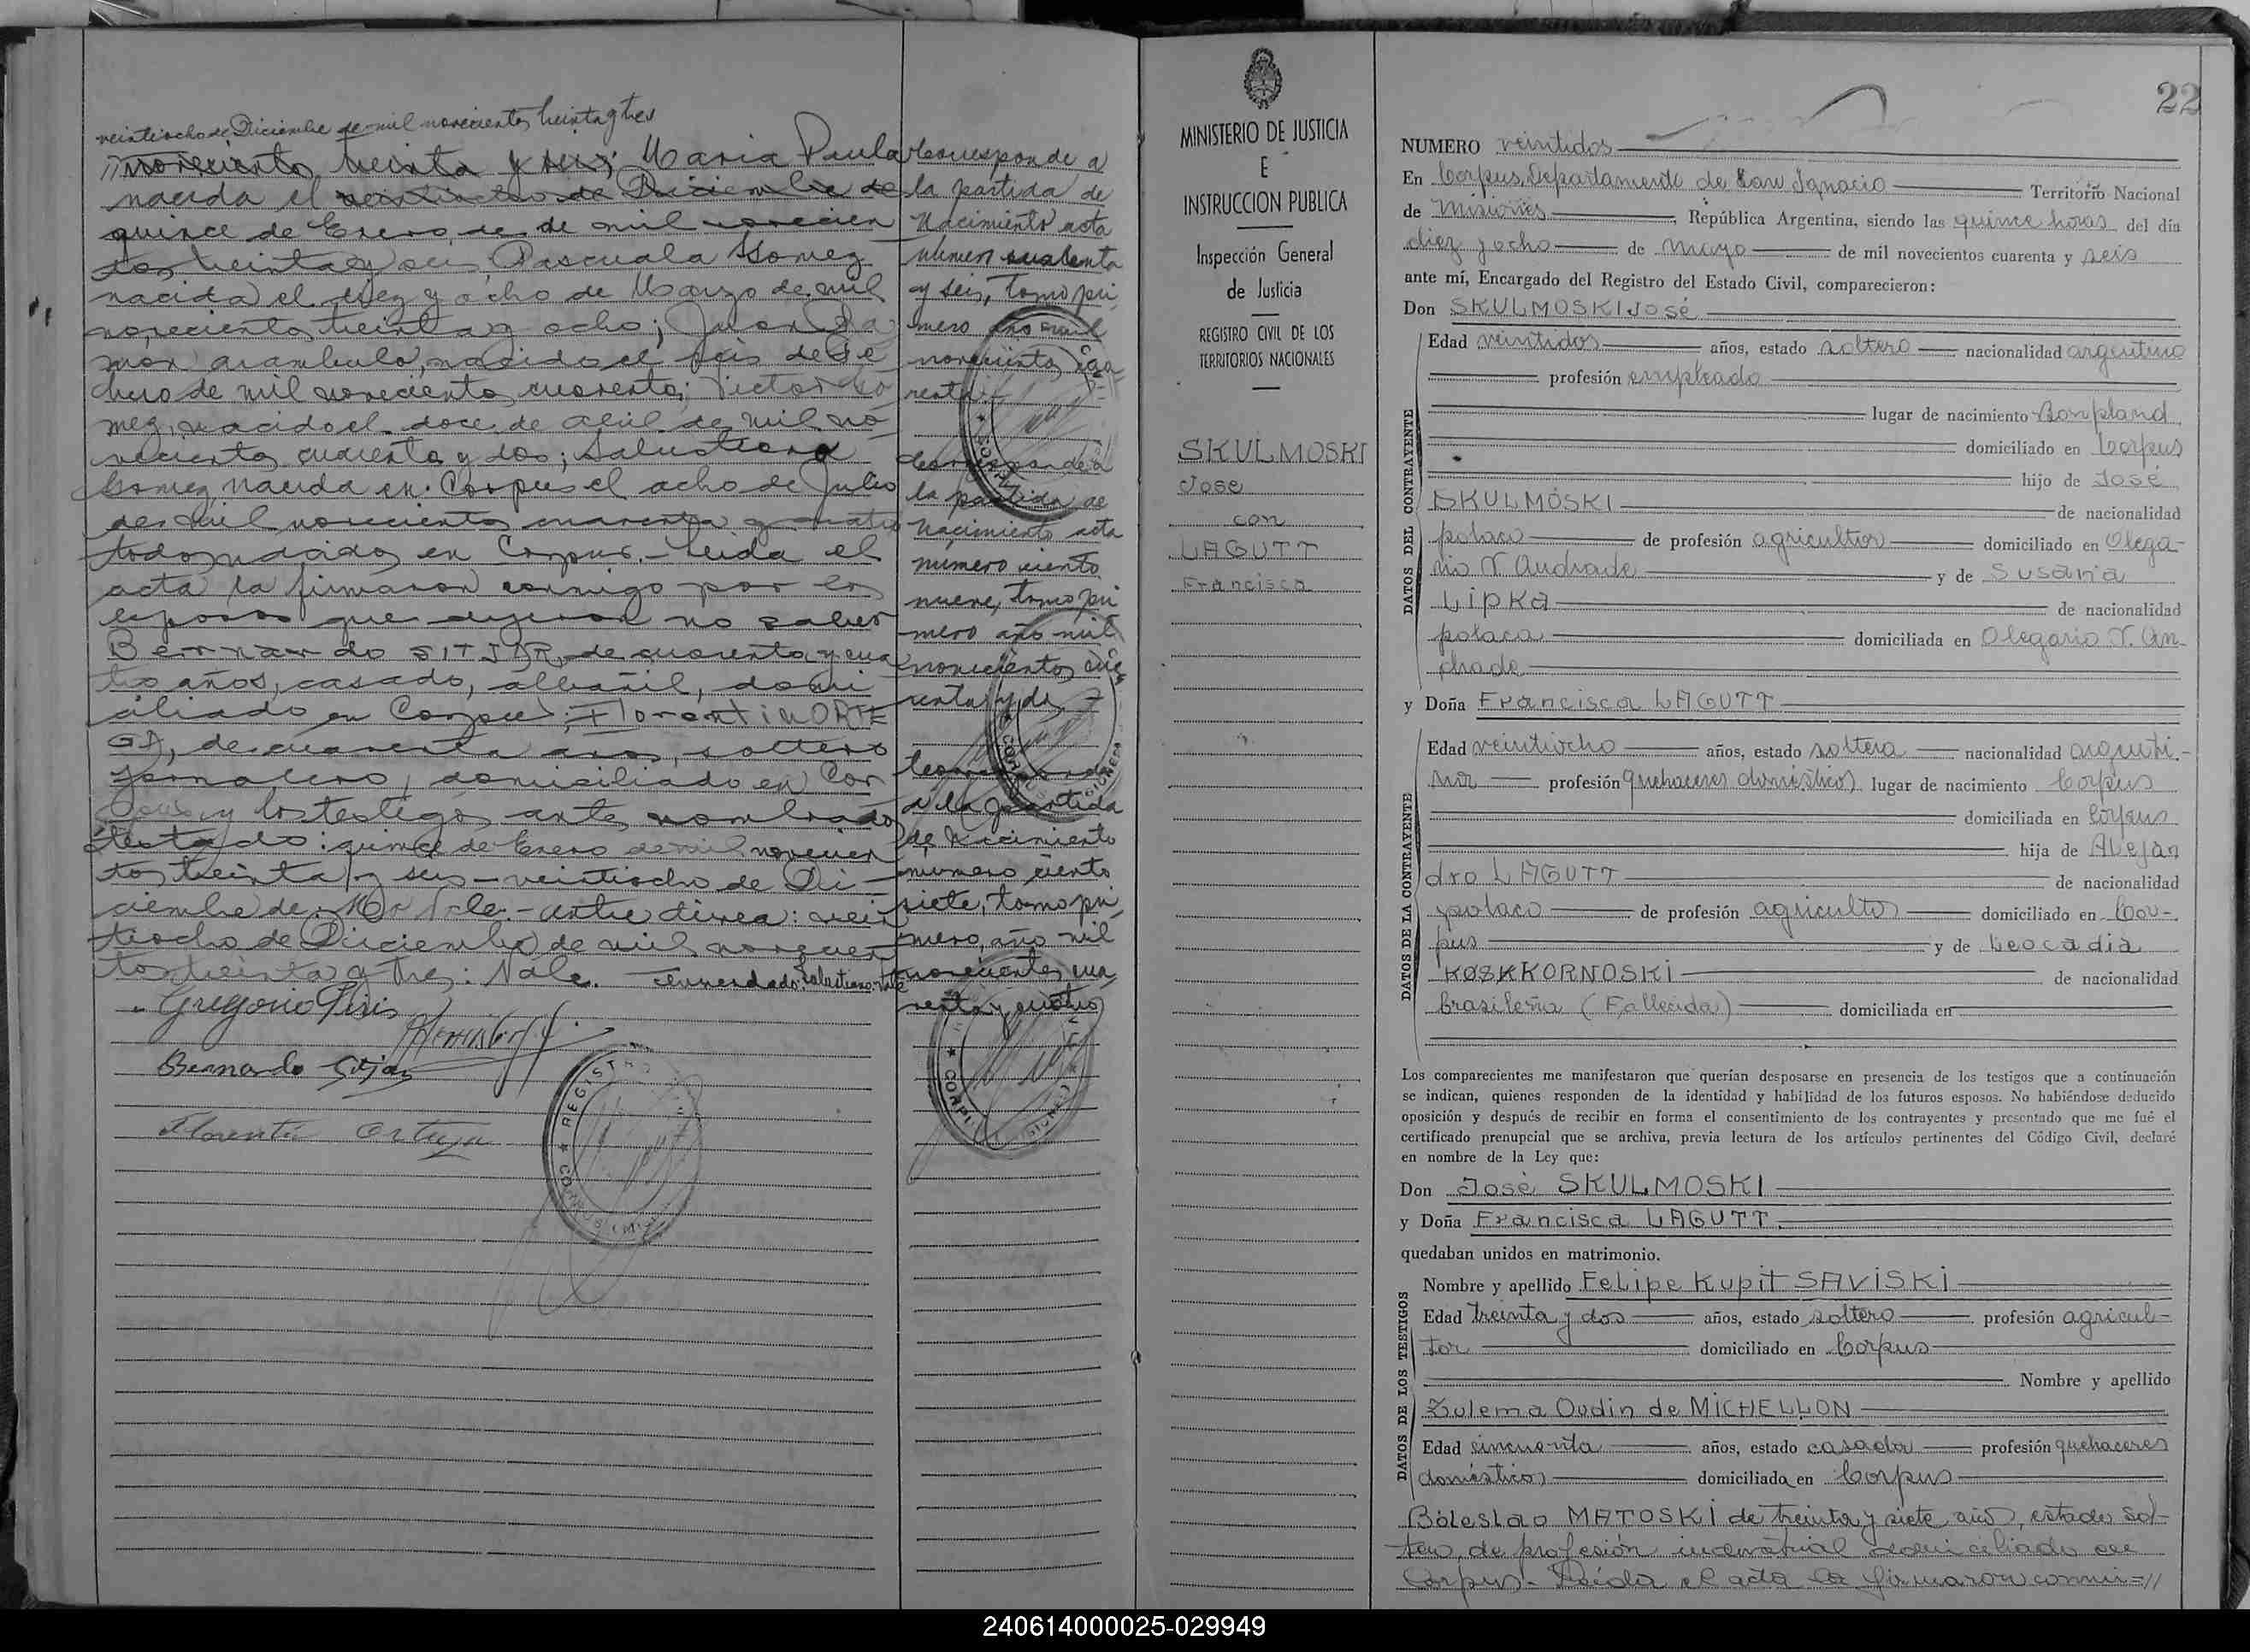 veintiocho de Diciembre de mil novecientos treinta y tres
novecientos treinta y seis; Maria Paula
nacida el veintiocho de Diciembre de
quince de Enero de de mil novecien
tos treinta y seis, Pascuala Gomez
nacida el diez y ocho de Marzo de mil
novecientos treinta y ocho; Juan Ra
mon Arambulo, nacido el seis de Fe
brero de mil novecientos cuarenta; Victor Go
mez, nacido el doce de abril de mil no
vecientos cuarenta y dos; Salustiana
Gomez, nacida en Corpus el ocho de Julio
de mil novecientos cuarenta y cuatro
todos nacidos en Corpus.- Leida el
acta la firmaron conmigo por los
esposos que dijeron no saber
Bernardo SITJAR, de cuarenta y cua
tro años, casado, albañil, domi
ciliado en Corpus; Florentin ORTE
GA, de cuarenta años, soltero
jornalero, domiciliado en Cor
pus y los testigos antes nombrados
testado: quince de Enero de mil novecien
tos treinta y seis - veintiocho de Di-
ciembre de: No Vale.- entre linea: vein
tiocho de Diciembre de mil novecien
tos treinta y tres: Vale. enmendado: Salustiana: Vale
Gregorio
Bernardo Sitjar
Florentin Ortega
REGISTRO
CORPUS (MIS
Corresponde a
la partida de
Nacimiento acta
número cuarenta
y seis, tomo pri
mero año mil
novecientos cua
renta
Corresponde a
la partida de
Nacimiento acta
número ciento
nueve, tomo pri
mero año mil
novecientos cua
renta y dos
Corresponde
a la partida
de Nacimiento
número ciento
siete, tomo pri
mero, año mil
novecientos cua
renta y cuatro
MINISTERIO DE JUSTICIA
E
INSTRUCCION PUBLICA
Inspección General
de Justicia
REGISTRO CIVIL DE LOS
TERRITORIOS NACIONALES
SKULMOSKI
Jose
con
LAGUTT
Francisca
22
NUMERO veintidos
En Corpus, Departamento de San Ignacio Territorio Nacional
de Misiones, República Argentina, siendo las quince horas del día
diez y ocho de mayo de mil novecientos cuarenta y seis
ante mí, Encargado del Registro del Estado Civil, comparecieron:
Don SKULMOSKI José
DATOS DEL CONTRAYENTE
Edad veintidos años, estado soltero nacionalidad argentino
profesión empleado
lugar de nacimiento Bonpland
domiciliado en Corpus
hijo de José
SKULMOSKI de nacionalidad
polaco de profesión agricultor domiciliado en Olega-
rio V. Andrade y de Susana
Lipka de nacionalidad
polaca domiciliada en Olegario V. An-
drade
y Doña Francisca LAGUTT
DATOS DE LA CONTRAYENTE
Edad veintiocho años, estado soltera nacionalidad argenti-
na profesión quehaceres domésticos lugar de nacimiento Corpus
domiciliada en Corpus
hija de Alejan
dro LAGUTT de nacionalidad
polaco de profesión agricultor domiciliado en Cor-
pus y de Leocadia
KOSKKORNOSKI de nacionalidad
brasileña (Fallecida) domiciliada en
Los comparecientes me manifestaron que querían desposarse en presencia de los testigos que a continuación
se indican, quienes responden de la identidad y habilidad de los futuros esposos. No habiéndose deducido
oposición y después de recibir en forma el consentimiento de los contrayentes y presentado que me fué el
certificado prenupcial que se archiva, previa lectura de los artículos pertinentes del Código Civil, declaré
en nombre de la Ley que:
Don José SKULMOSKI
y Doña Francisca LAGUTT
quedaban unidos en matrimonio.
DATOS DE LOS TESTIGOS
Nombre y apellido Felipe Kupit SAVISKI
Edad treinta y dos años, estado soltero profesión agricul-
tor domiciliado en Corpus
Nombre y apellido
Zulema Oudin de MICHELLON
Edad cincuenta años, estado casada profesión quehaceres
domésticos domiciliada en Corpus
Boleslao MATOSKI de treinta y siete años, estado sol-
tero, de profesión industrial domiciliado en
Corpus.- Leída el acta la firmaron conmi=//
240614000025-029949